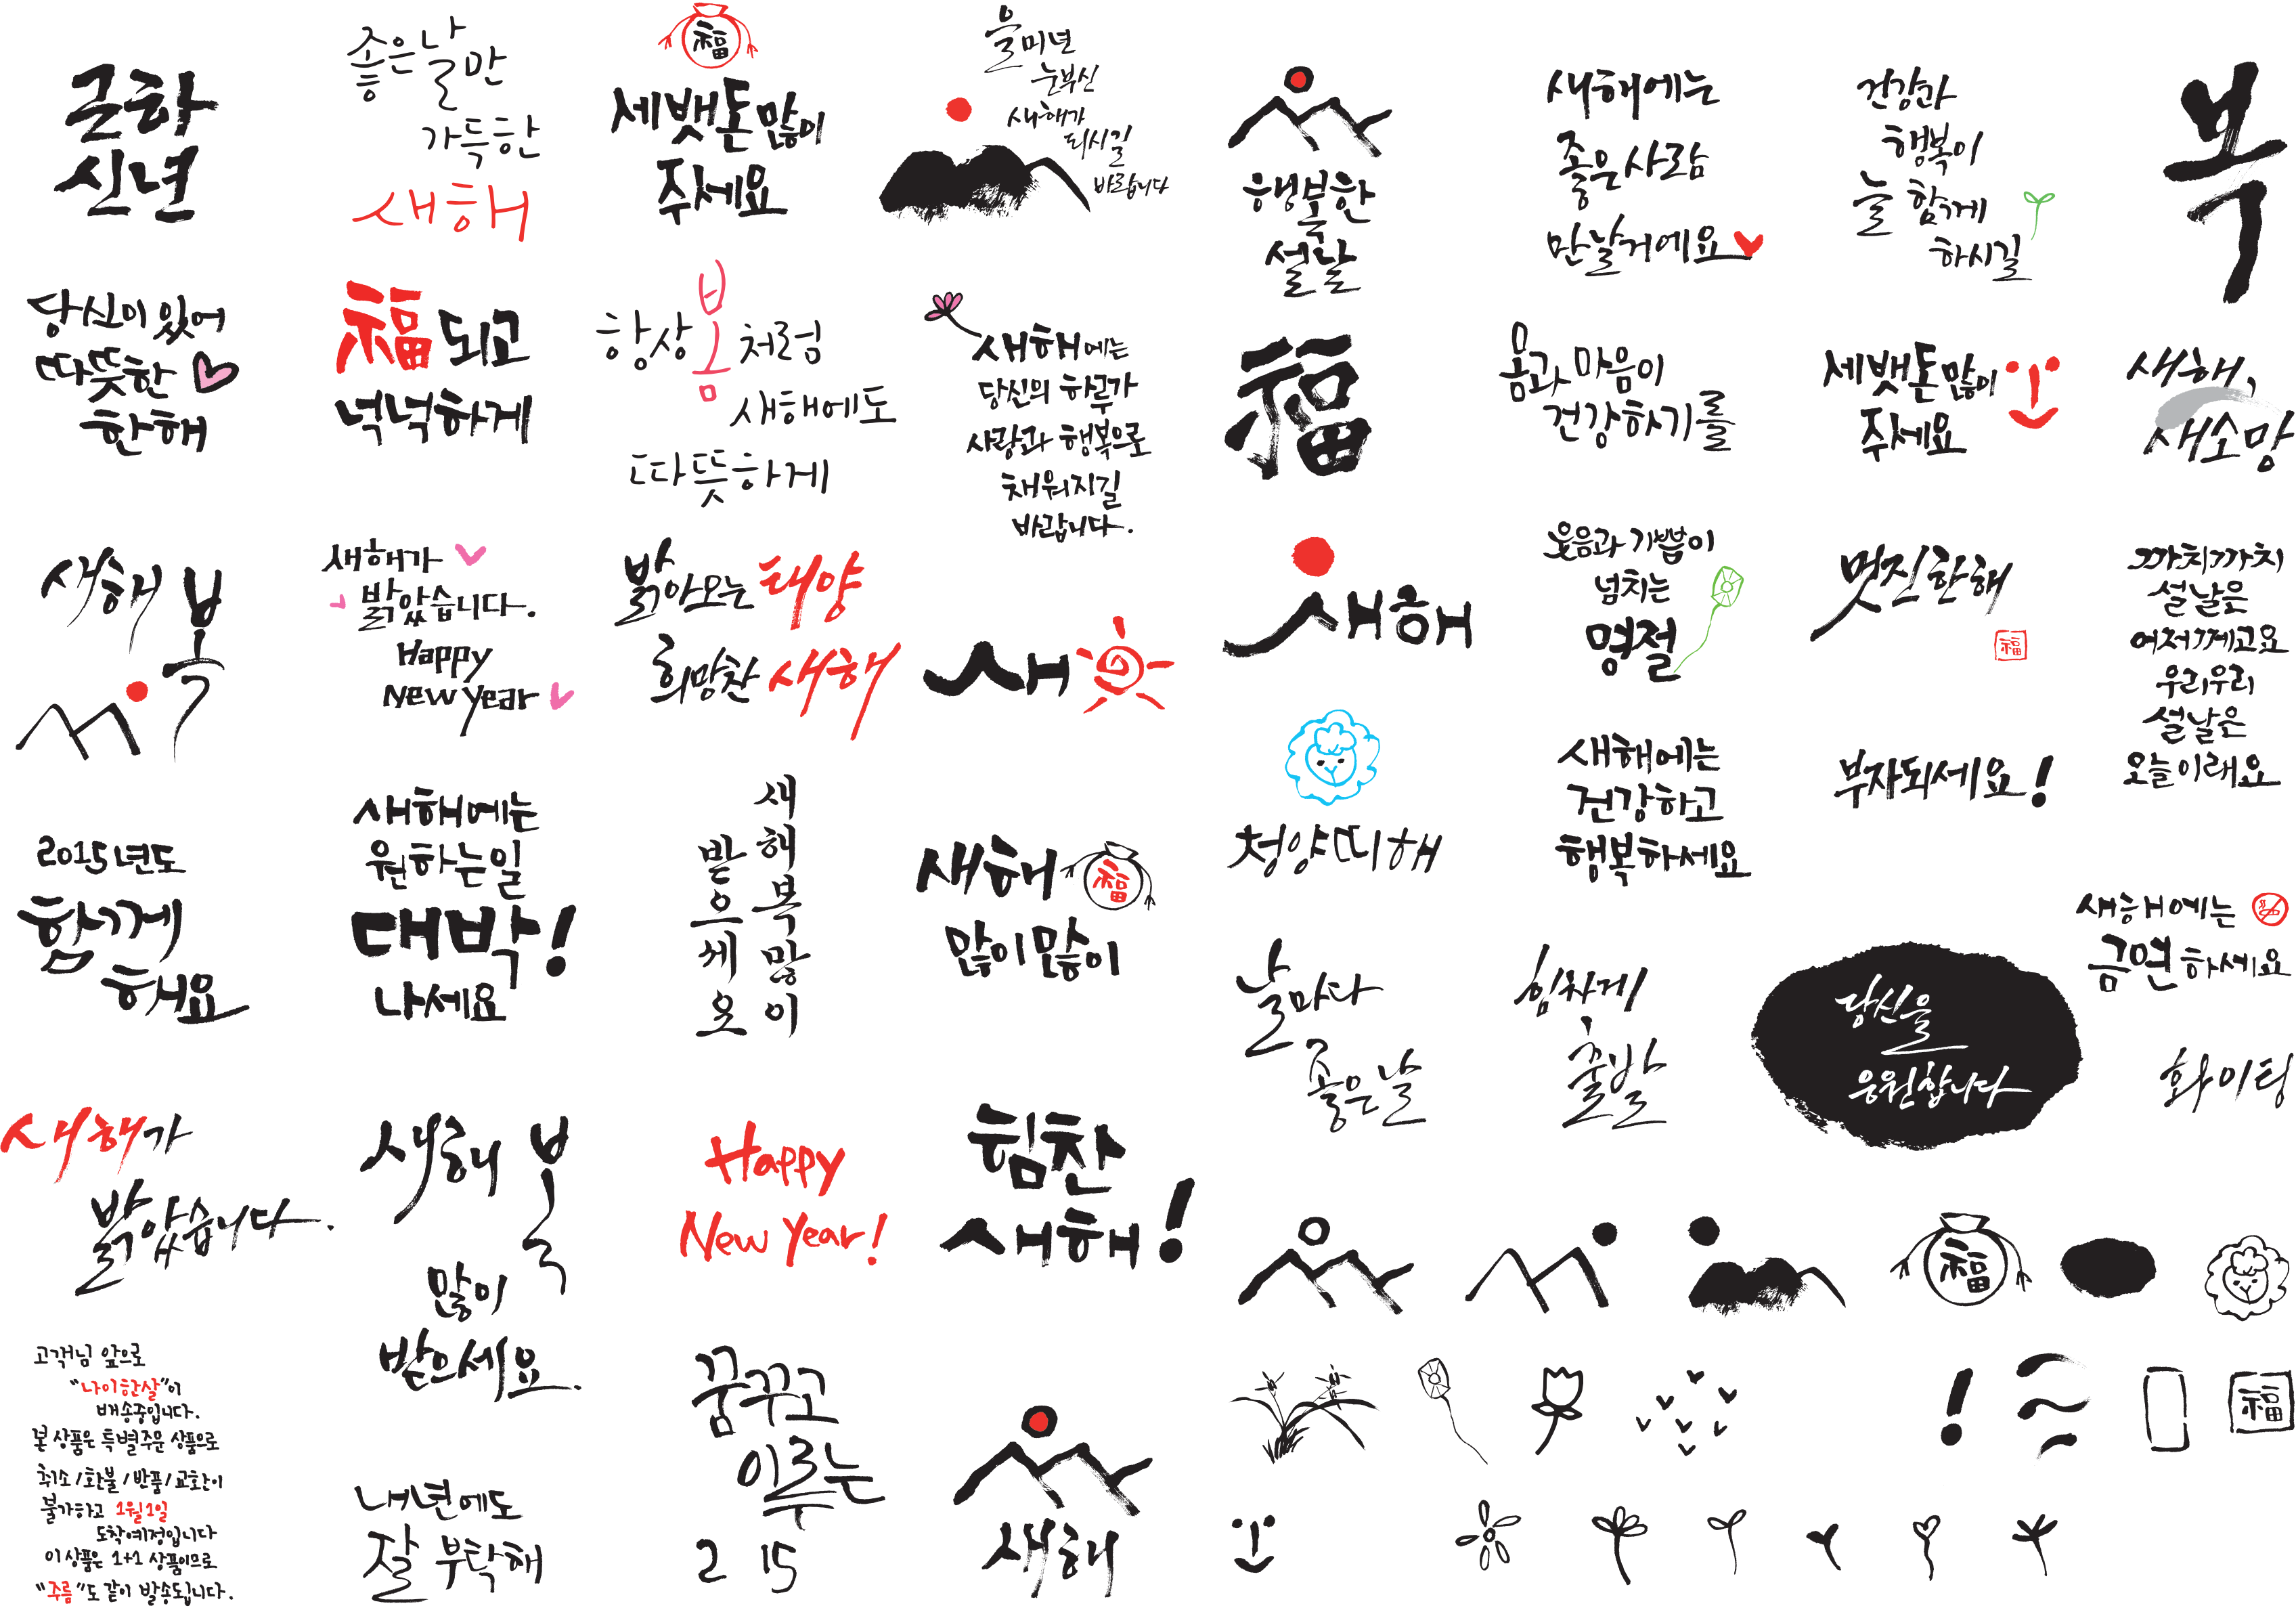 근하
신년
좋은 날만
가득한
새해
福
세뱃돈 많이
주세요
을미년
눈부신
새해가
되시길
바랍니다
행복한
설날
새해에는
좋은 사람
만날거에요
건강과
행복이
늘 함께
하시길
복
당신이 있어
따뜻한
한해
福 되고
넉넉하게
항상 봄처럼
새해에도
따뜻하게
새해에는
당신의 하루가
사랑과 행복으로
채워지길
바랍니다.
福
몸과 마음이
건강하기를
세뱃돈 많이
주세요
새해,
새소망
새해 복
새해가
밝았습니다.
Happy
New year
밝아오는 태양
희망찬 새해
새
새해
웃음과 기쁨이
넘치는
명절
멋진한해
福
까치까치
설날은
어저께고요
우리우리
설날은
오늘이래요
2015년도
함께
해요
새해에는
원하는일
대박!
나세요
새해복많이
받으세요
새해 福
많이많이
청양띠해
새해에는
건강하고
행복하세요
부자되세요!
날마다
좋은날
힘차게
출발
당신을
응원합니다
새해에는
금연하세요
화이팅
새해가
밝았습니다.
새해 복
많이
받으세요.
Happy
New Year!
힘찬
새해!
福
고객님 앞으로
"나이한살"이
배송중입니다.
본 상품은 특별주문 상품으로
취소/환불/반품/교환이
불가하고 1월1일
도착예정입니다
이 상품은 1+1 상품이므로
"주름"도 같이 발송됩니다.
내년에도
잘 부탁해
꿈꾸고
이루는
2 15
새해
!
福